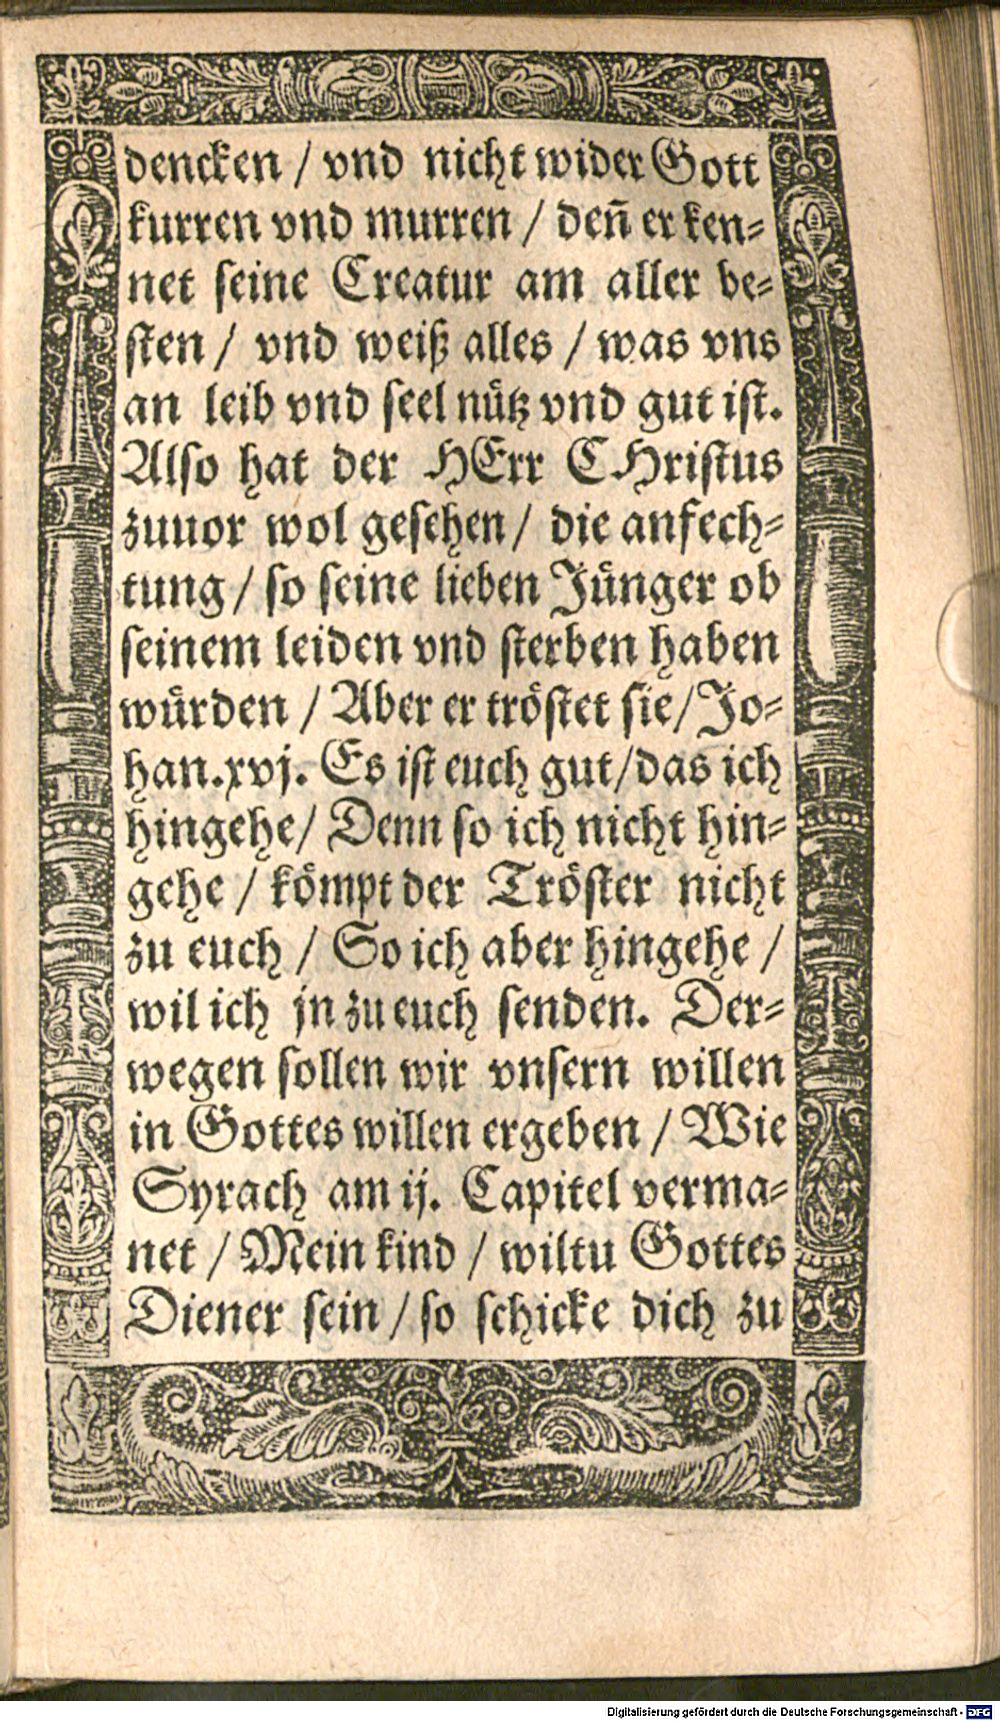 dencken / vnd nicht wider Gott
kurren vnd murren / deñ er ken-
net seine Creatur am aller be-
sten / vnd weiß alles / was vns
an leib vnd seel nuͤtz vnd gut ist.
Also hat der HErr CHristus
zuuor wol gesehen / die anfech-
tung / so seine lieben Juͤnger ob
seinem leiden vnd sterben haben
wuͤrden / Aber er troͤstet sie / Jo-
han.xvj. Es ist euch gut / das ich
hingehe / Denn so ich nicht hin-
gehe / koͤmpt der Troͤster nicht
zu euch / So ich aber hingehe /
wil ich jn zu euch senden. Der-
wegen sollen wir vnsern willen
in Gottes willen ergeben / Wie
Syrach am ij. Capitel verma-
net / Mein kind / wiltu Gottes
Diener sein / so schicke dich zu
Digitalisierung gefördert durch die Deutsche Forschungsgemeinschaft - DFG